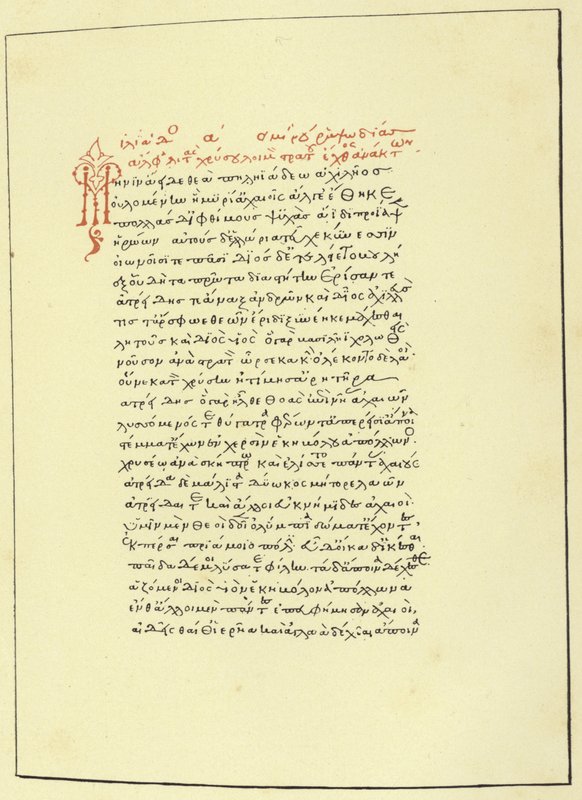 ἰλιάδος α' ὁμήρου ῥαψωδίας
ἄλφα λιτὰς χρύσου λοιμὸν στρατοῦ ἔχθος ἀνάκτων
Μῆνιν ἄειδε θεὰ πηληϊάδεω ἀχιλῆος
οὐλομένην ἣ μυρί' ἀχαιοῖς ἄλγε' ἔθηκε
πολλὰς δ' ἰφθίμους ψυχὰς ἄϊδι προΐαψεν
ἡρώων αὐτοὺς δὲ ἑλώρια τεῦχε κύνεσσιν
οἰωνοῖσί τε πᾶσι διὸς δ' ἐτελείετο βουλή
ἐξ οὗ δὴ τὰ πρῶτα διαστήτην ἐρίσαντε
ἀτρείδης τε ἄναξ ἀνδρῶν καὶ δῖος ἀχιλλεύς
τίς τάρ σφωε θεῶν ἔριδι ξυνέηκε μάχεσθαι
λητοῦς καὶ διὸς υἱός ὁ γὰρ βασιλῆϊ χολωθείς
νοῦσον ἀνὰ στρατὸν ὦρσε κακὴν ὀλέκοντο δὲ λαοί
οὕνεκα τὸν χρύσην ἠτίμησ' ἀρητῆρα
ἀτρείδης ὁ γὰρ ἦλθε θοὰς ἐπὶ νῆας ἀχαιῶν
λυσόμενός τε θύγατρα φέρων τ' ἀπερείσι' ἄποινα
στέμματ' ἔχων ἐν χερσὶν ἑκηβόλου ἀπόλλωνος
χρυσέω ἀνὰ σκήπτρω καὶ ἐλίσσετο πάντας ἀχαιούς
ἀτρείδα δὲ μάλιστα δύω κοσμήτορε λαῶν
ἀτρεῖδαι τε καὶ ἄλλοι ἐϋκνήμιδες ἀχαιοί
ὑμῖν μὲν θεοὶ δοῖεν ὀλύμπια δώματ' ἔχοντες
ἐκπέρσαι πριάμοιο πόλιν εὖ δ' οἴκαδ' ἱκέσθαι
παῖδα δέ μοι λύσατε φίλην τὰ δ' ἄποινα δέχεσθε
ἁζόμενοι διὸς υἱὸν ἑκηβόλον ἀπόλλωνα
ἔνθ' ἄλλοι μὲν πάντες ἐπευφήμησαν ἀχαιοί
αἰδεῖσθαί θ' ἱερῆα καὶ ἀγλαὰ δέχθαι ἄποινα